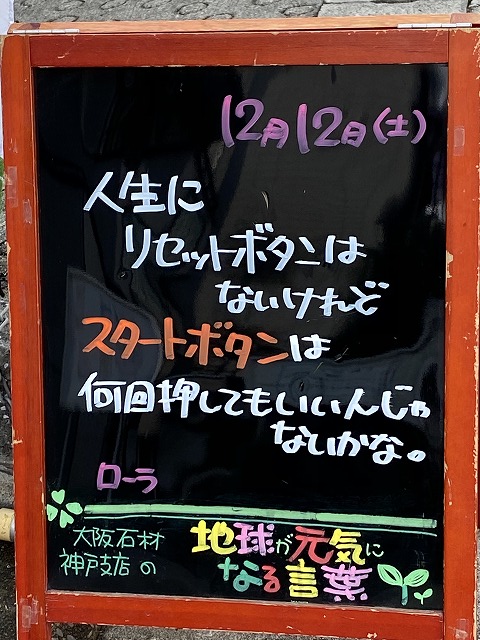 12月12日(土)
人生に
リセットボタンは
ないけれど
スタートボタンは
何回押してもいいんじゃ
ないかな。
ローラ
大阪石材
神戸支店の
地球が元気に
なる言葉